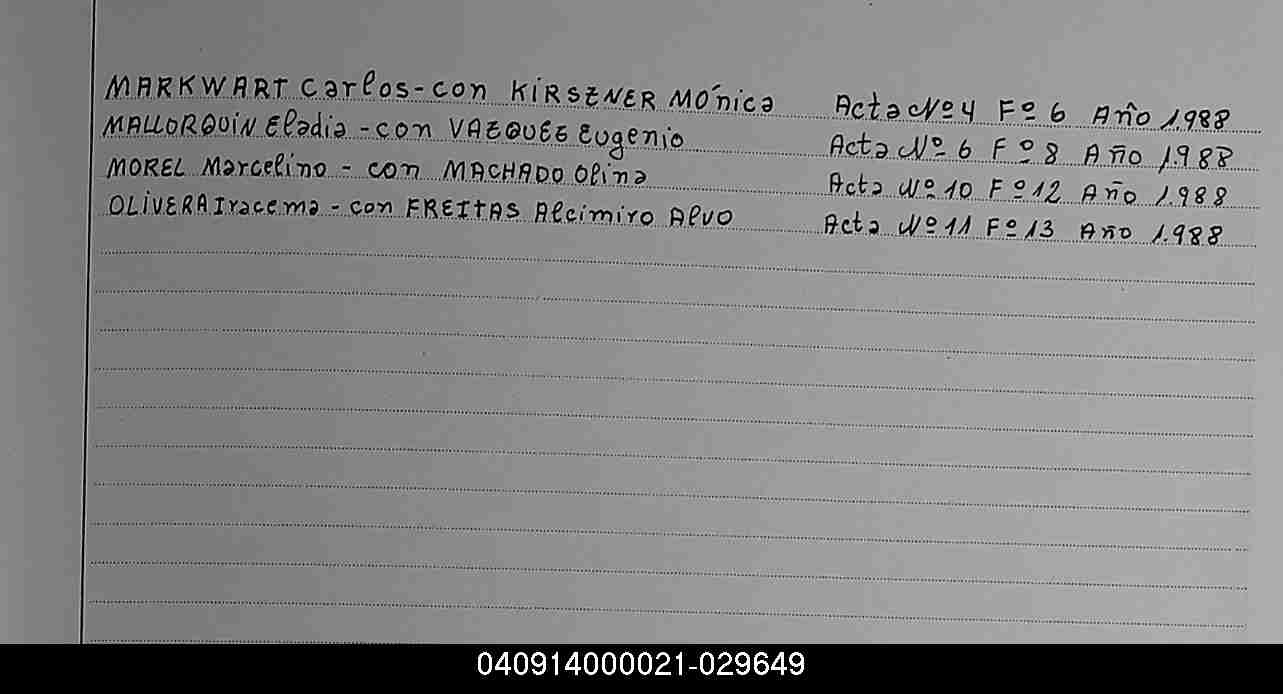 MARKWART Carlos - con KIRSZNER Mónica Acta Nº 4 Fº 6 Año 1.988
MALLORQUIN Eladia - con VAZQUEZ Eugenio Acta Nº 6 Fº 8 Año 1.988
MOREL Marcelino - con MACHADO Olina Acta Nº 10 Fº 12 Año 1.988
OLIVERA Iracema - con FREITAS Alcimiro Alvo Acta Nº 11 Fº 13 Año 1.988
040914000021-029649